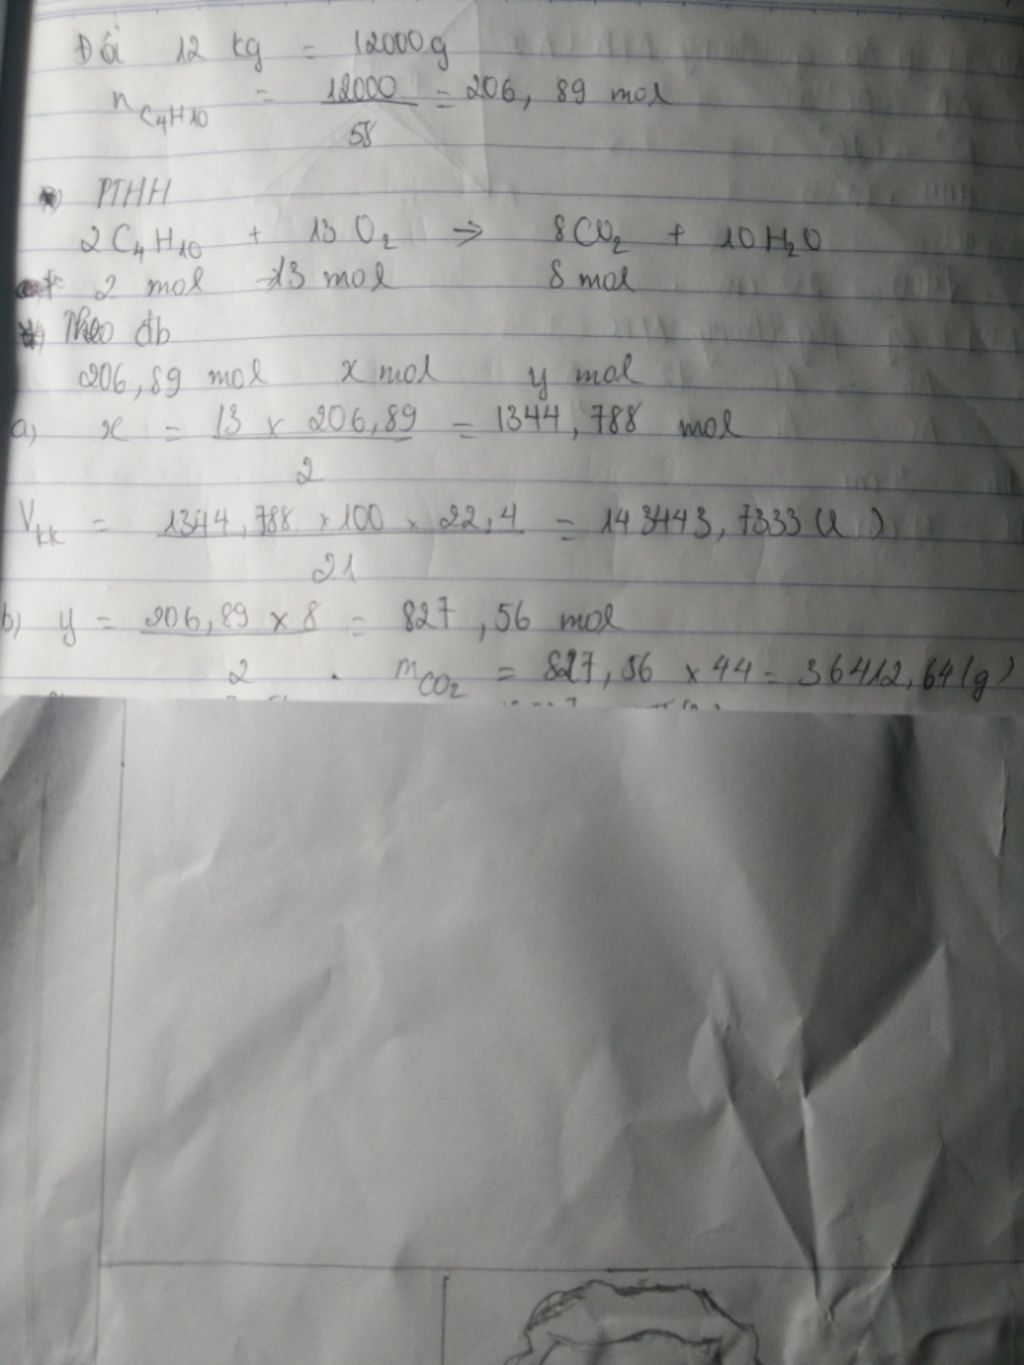 Đổi 12 kg = 12000g
n C4H10 = 12000 / 58 = 206,89 mol
PTHH
2C4H10 + 13O2 => 8CO2 + 10H2O
2 mol 13 mol 8 mol
Theo đb
206,89 mol x mol y mol
a) x = 13 x 206,89 / 2 = 1344,788 mol
Vkk = 1344,788 x 100 x 22,4 / 21 = 143443,7333 (l)
b) y = 206,89 x 8 / 2 = 827,56 mol
mCO2 = 827,56 x 44 = 36412,64 (g)